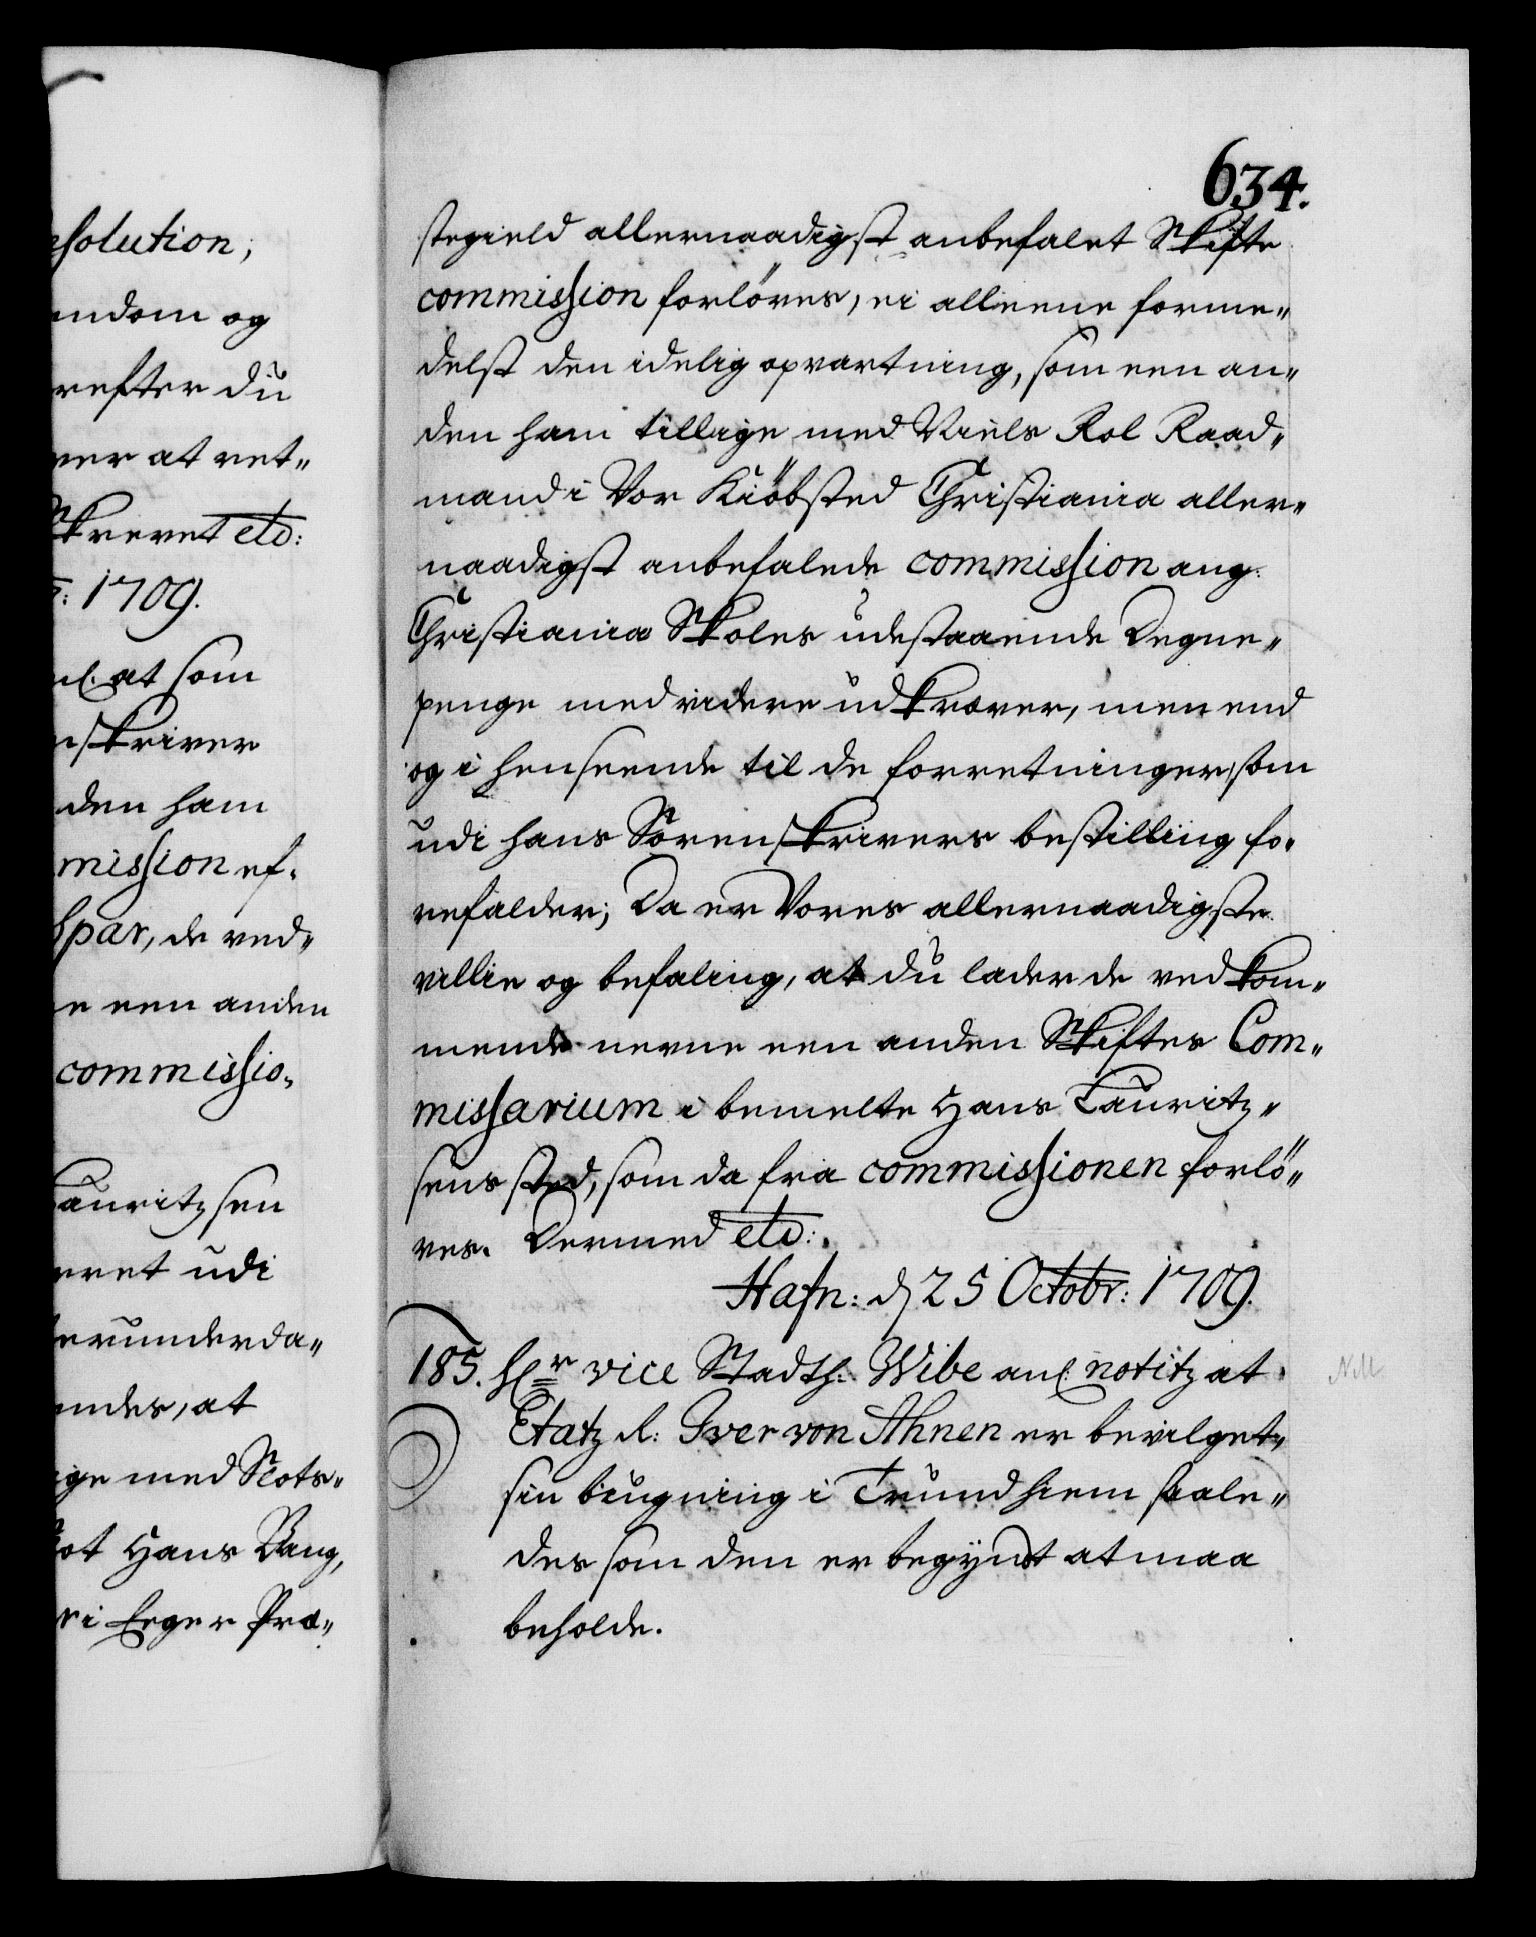 solution,
endom og
refter du
ver at ret„
Skrevet etc:
: 1709.
at som
nskriver
den ham
mission ef„
Spar, de ved„
e een anden
commissio„
Lauritzsen
eret udi
derunderda„
endes, at
ige med Slots„
ot Hans Bang,
i Eeger Præ„
634.
stegield allernaadigst anbefalet Skifte
commission forlöves, ei alleene forme„
delst den idelig opvartning, som een an„
den ham tillige med Niels Rol Raad„
mand i Vor Kiöbsted Christiania aller„
naadigst anbefalede commission ang:
Christiania Skoles udestaaende Degne„
penge med videre udkræver, men end
og i henseende til de forretninger, som
udi hans Sorenskrivers bestilling fo„
refalder; Da er Vores allernaadigste
villie og befaling, at du lader de vedkom„
mende nevne een anden Skiftes Com„
missarium i bemelte Hans Lauritz„
sens sted, som da fra commissionen forlö„
ves. Dermed etc:
Hafn: d 25 Octobr: 1709.
185. Hr vice Stadth: Wibe anl. notitz at
Etatz R: Iver von Ahnen er bevilget,
sin biugning i Trundhiem saale„
des som den er begÿnt at maa
beholde.